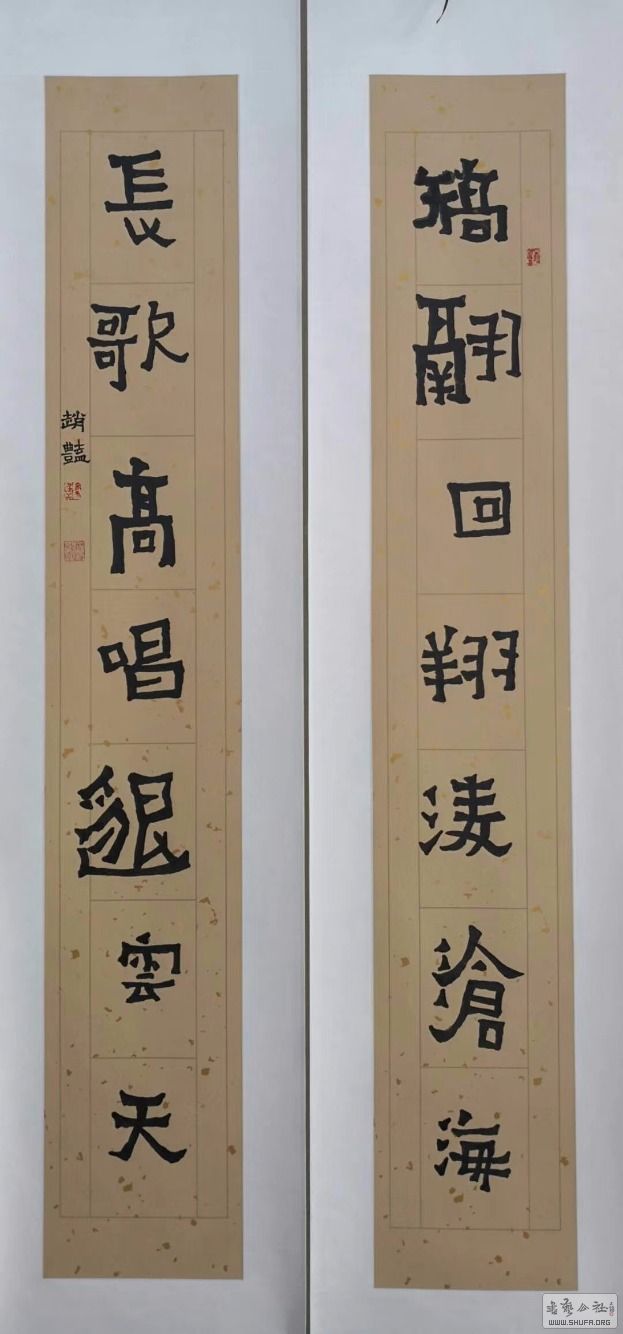 矯翮回翔淩滄海
長歌高唱邈雲天
趙豔
书艺公社
WWW.SHUFA.ORG